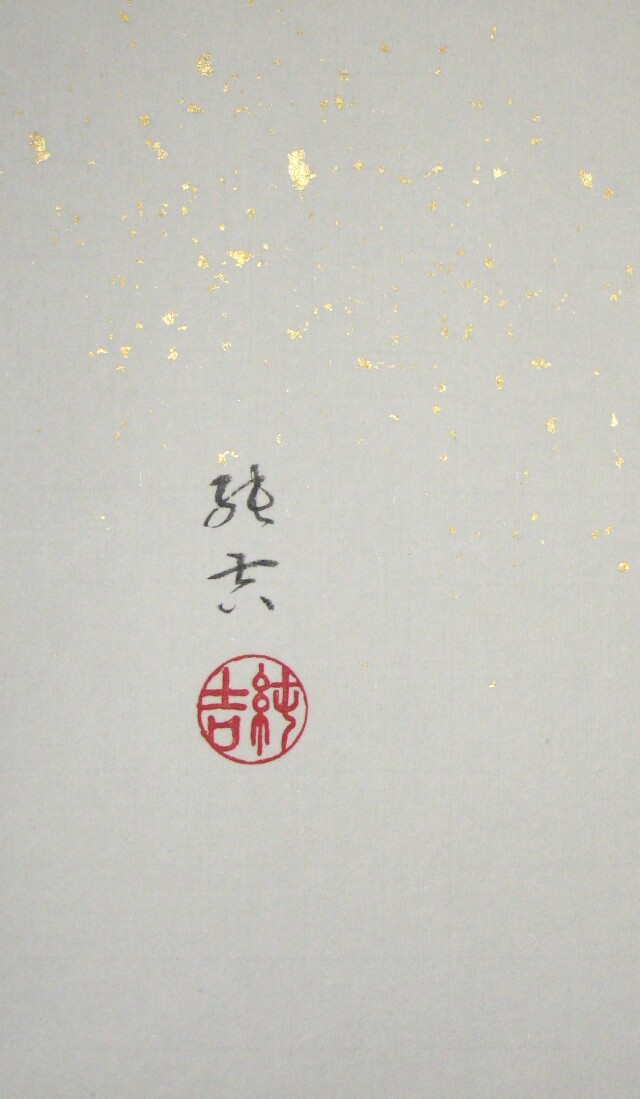 純吉
純吉